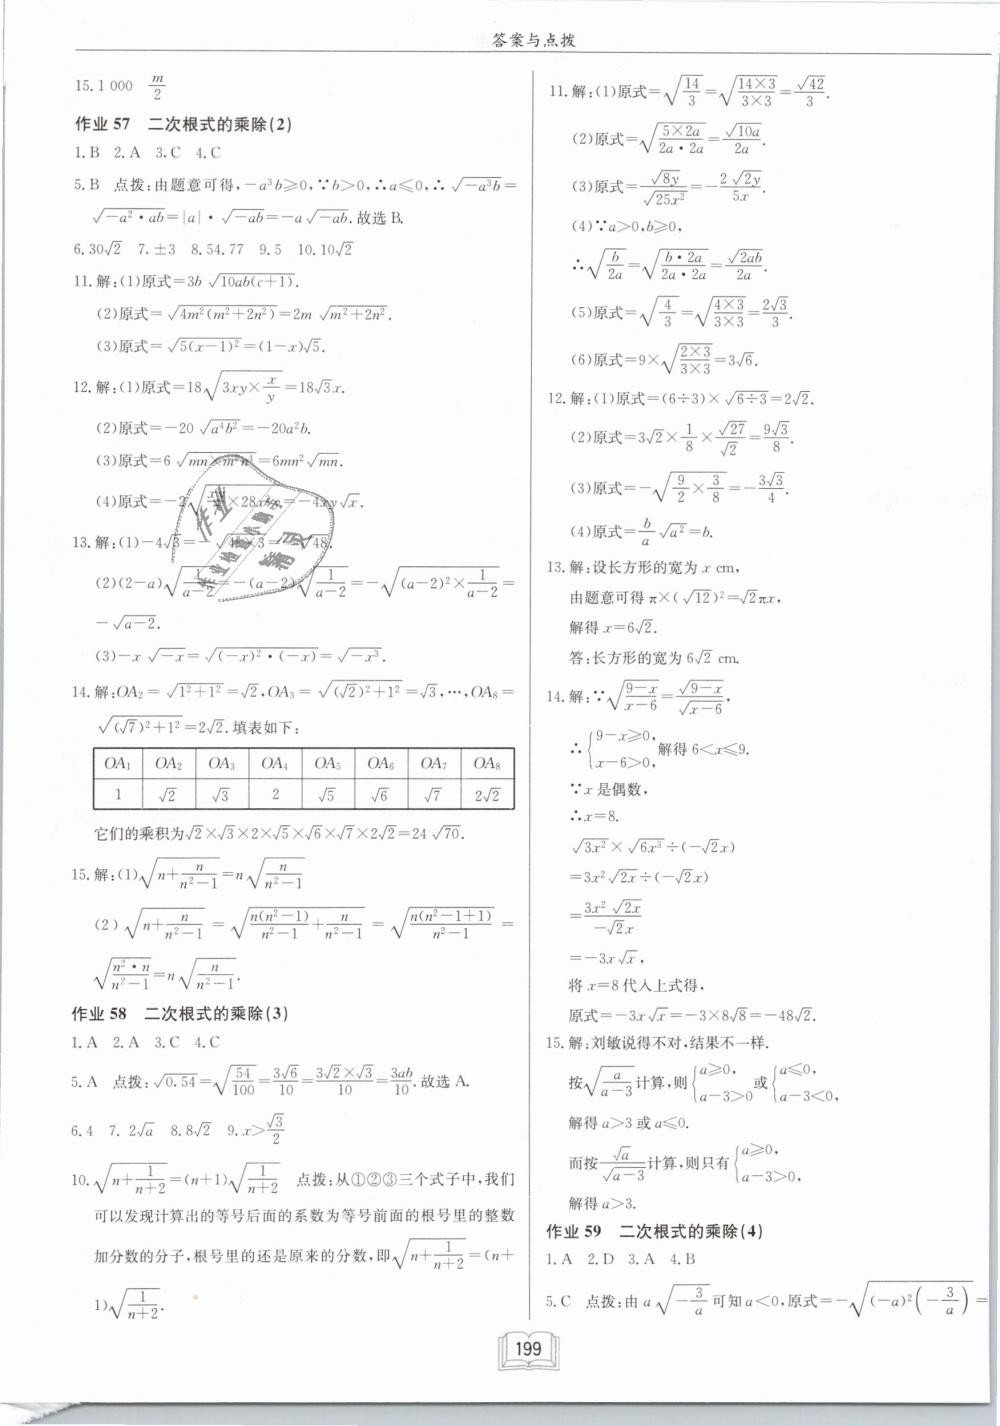 答案与点拨
15.1 000　m/2
作业 57　二次根式的乘除(2)
1.B　2.A　3.C　4.C
5.B　点拨:由题意可得,-a³b≥0,∵b>0,∴a≤0,∴√(-a³b)=
√(-a²·ab)=|a|·√(-ab)=-a√(-ab).故选B.
6.30√2　7.±3　8.54.77　9.5　10.10√2
11.解:(1)原式=3b√(10ab(c+1)).
(2)原式=√(4m²(m²+2n²))=2m√(m²+2n²).
(3)原式=√(5(x-1)²)=(1-x)√5.
12.解:(1)原式=18√(3xy×x/y)=18√3x.
(2)原式=-20√(a⁴b²)=-20a²b.
(3)原式=6√(mn×m²n⁴)=6mn²√(mn).
(4)原式=-2 ×28 =-4xy√x.
13.解:(1)-4√3=-√(4²×3)=-√48.
(2)(2-a)√(1/(a-2))=-(a-2)√(1/(a-2))=-√((a-2)²×1/(a-2))=
-√(a-2).
(3)-x√(-x)=√((-x)²·(-x))=√(-x³).
14.解:OA₂=√(1²+1²)=√2,OA₃=√((√2)²+1²)=√3,…,OA₈=
√((√7)²+1²)=2√2.填表如下:
OA₁　OA₂　OA₃　OA₄　OA₅　OA₆　OA₇　OA₈
1　√2　√3　2　√5　√6　√7　2√2
它们的乘积为√2×√3×2×√5×√6×√7×2√2=24√70.
15.解:(1)√(n+n/(n²-1))=n√(n/(n²-1))
(2)√(n+n/(n²-1))=√(n(n²-1)/(n²-1)+n/(n²-1))=√(n(n²-1+1)/(n²-1))=
√(n²·n/(n²-1))=n√(n/(n²-1)).
作业 58　二次根式的乘除(3)
1.A　2.A　3.C　4.C
5.A　点拨:√0.54=√(54/100)=3√6/10=3√2×√3/10=3ab/10.故选A.
6.4　7.2√a　8.8√2　9.x>√3/2
10.√(n+1/(n+2))=(n+1)√(1/(n+2))　点拨:从①②③三个式子中,我们
可以发现计算出的等号后面的系数为等号前面的根号里的整数
加分数的分子,根号里的还是原来的分数,即√(n+1/(n+2))=(n+
1)√(1/(n+2)).
11.解:(1)原式=√(14/3)=√(14×3/(3×3))=√42/3.
(2)原式=√(5×2a/(2a·2a))=√(10a)/2a.
(3)原式=√(8y)/√(25x²)=-2√(2y)/5x.
(4)∵a>0,b≥0,
∴√(b/2a)=√(b·2a/(2a·2a))=√(2ab)/2a.
(5)原式=√(4/3)=√(4×3/(3×3))=2√3/3.
(6)原式=9×√(2×3/(3×3))=3√6.
12.解:(1)原式=(6÷3)×√(6÷3)=2√2.
(2)原式=3√2×1/8×√27/√2=9√3/8.
(3)原式=-√(9/2×3/8)=-3√3/4.
(4)原式=b/a√(a²)=b.
13.解:设长方形的宽为x cm,
由题意可得π×(√12)²=√2πx,
解得x=6√2.
答:长方形的宽为6√2 cm.
14.解:∵√((9-x)/(x-6))=√(9-x)/√(x-6),
∴{9-x≥0, x-6>0,解得6<x≤9.
∵x是偶数,
∴x=8.
√(3x²)×√(6x³)÷(-√2x)
=3x²√(2x)÷(-√2x)
=3x²√(2x)/(-√2x)
=-3x√x,
将x=8代入上式得,
原式=-3x√x=-3×8√8=-48√2.
15.解:刘敏说得不对,结果不一样.
按√(a/(a-3))计算,则{a≥0, a-3>0或{a≤0, a-3<0,
解得a>3或a≤0.
而按√a/√(a-3)计算,则只有{a≥0, a-3>0,
解得a>3.
作业 59　二次根式的乘除(4)
1.A　2.D　3.A　4.B
5.C　点拨:由a√(-3/a)可知a<0,原式=-√((-a)²(-3/a))=
199